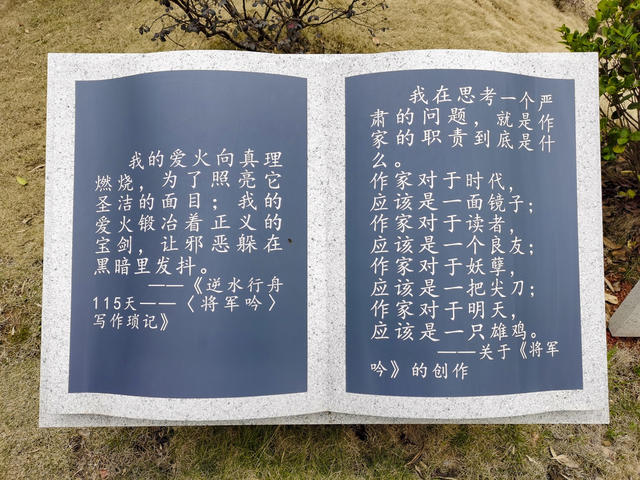 我的爱火向真理
燃烧，为了照亮它
圣洁的面目；我的
爱火锻冶着正义的
宝剑，让邪恶躲在
黑暗里发抖。
——《逆水行舟
115天——〈将军吟〉
写作琐记》
我在思考一个严
肃的问题，就是作
家的职责到底是什
么。
作家对于时代，
应该是一面镜子；
作家对于读者，
应该是一个良友；
作家对于妖孽，
应该是一把尖刀；
作家对于明天，
应该是一只雄鸡。
——关于《将军
吟》的创作